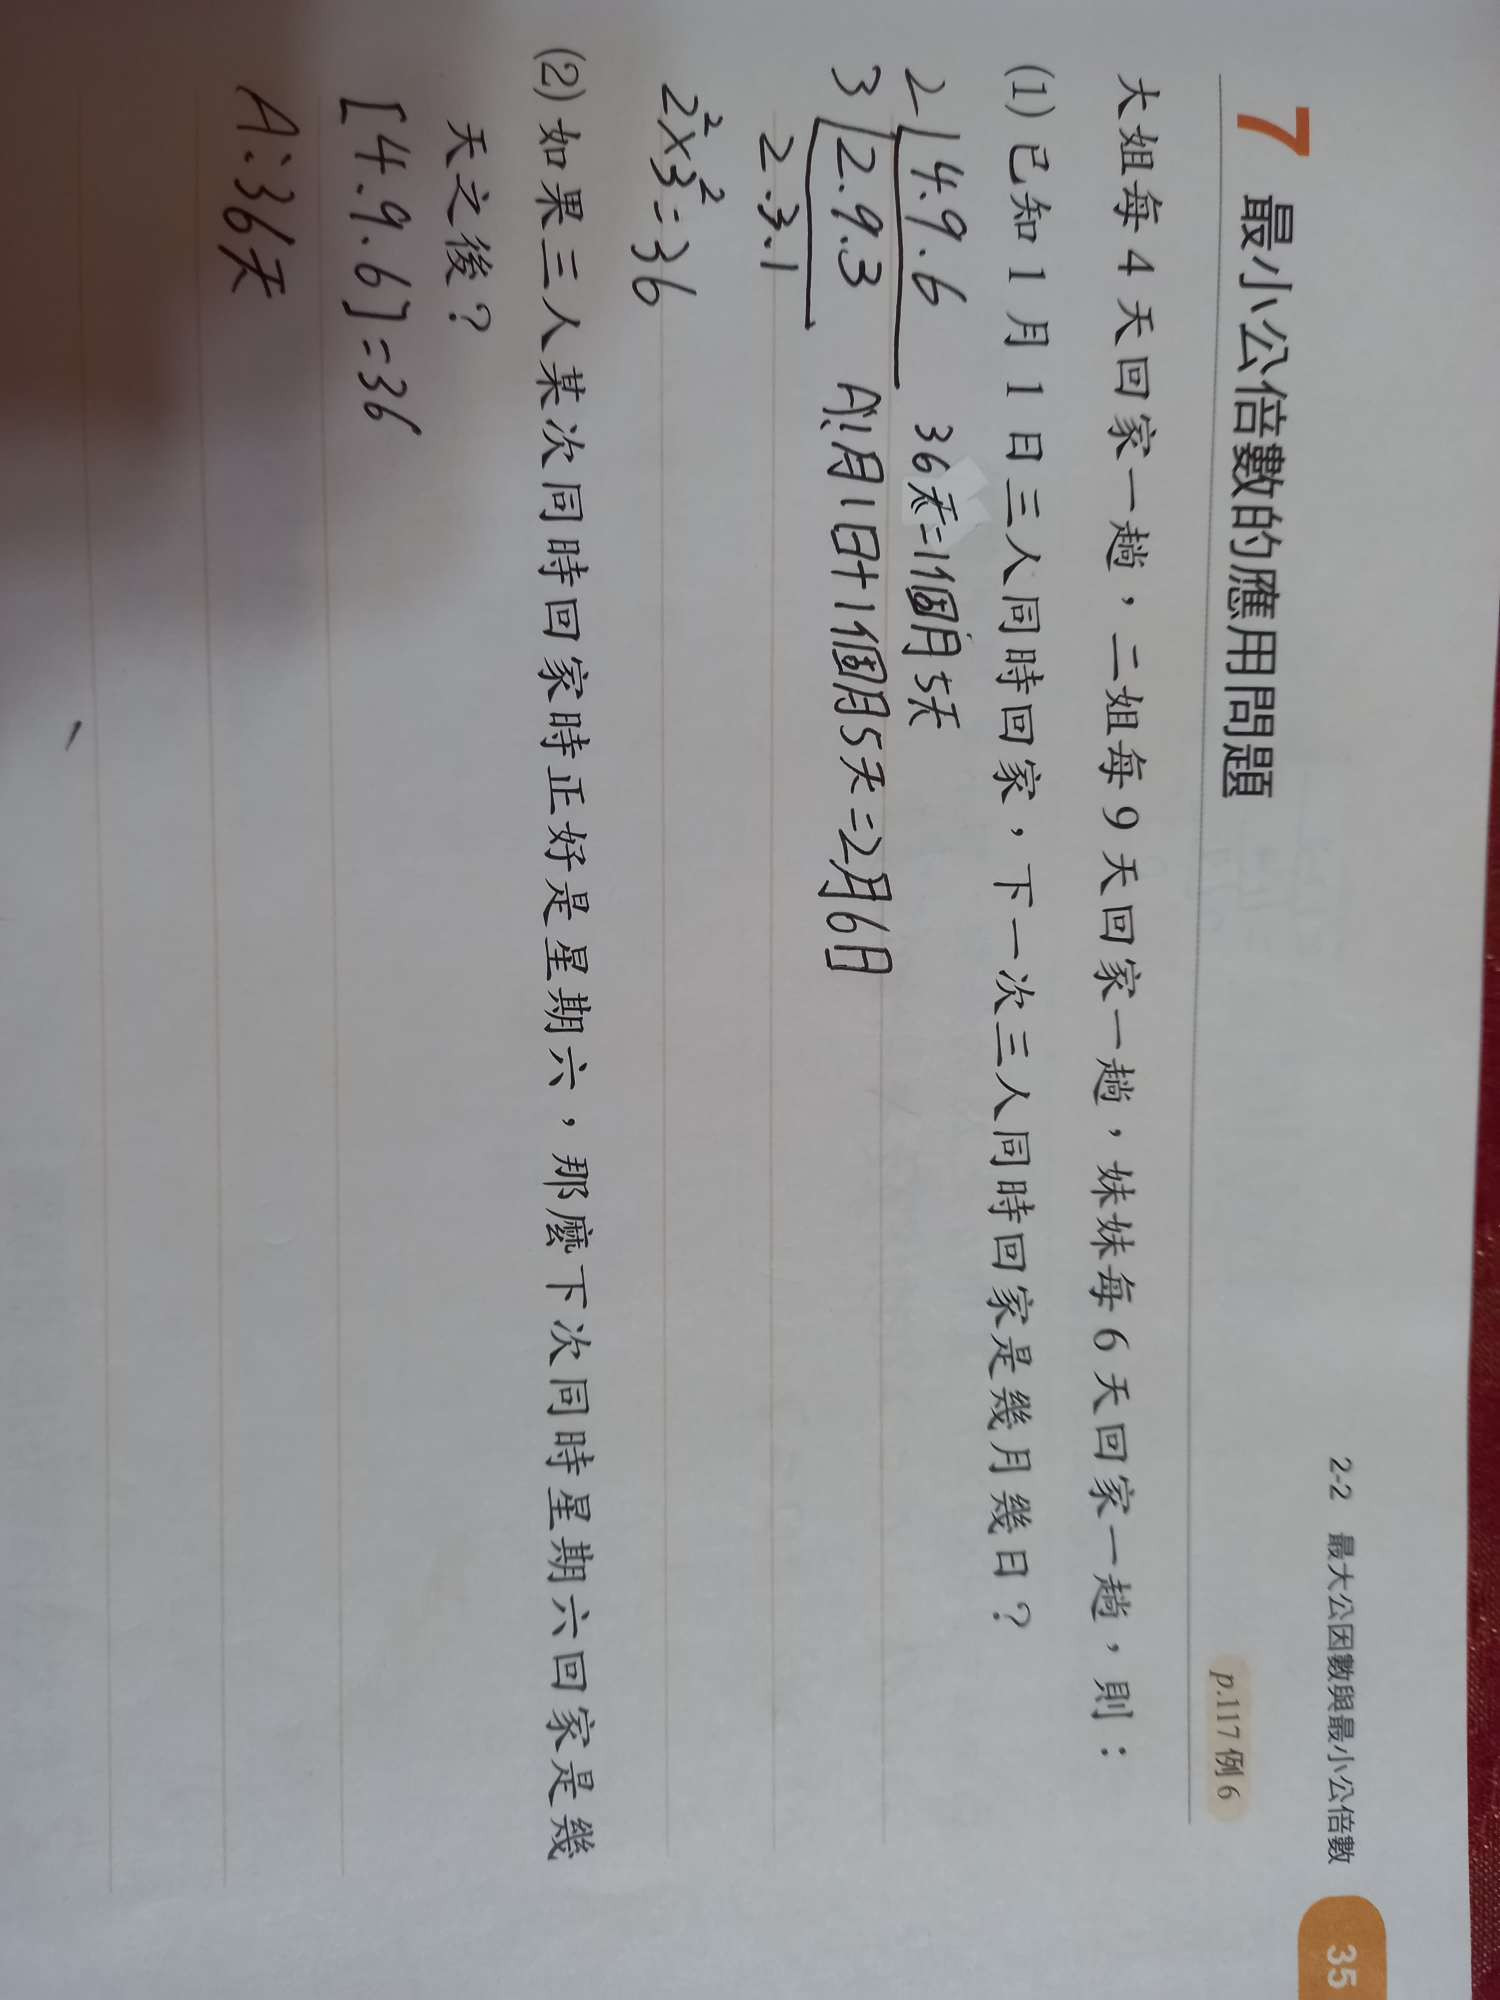 2-2 最大公因數與最小公倍數 35
7 最小公倍數的應用問題 p.117 例 6
大姐每 4 天回家一趟，二姐每 9 天回家一趟，妹妹每 6 天回家一趟，則：
(1) 已知 1 月 1 日三人同時回家，下一次三人同時回家是幾月幾日？
2 4.9.6 36天=1個月5天
3 2.9.3 A:1月1日+1個月5天=2月6日
2.3.1
2²×3²=36
(2) 如果三人某次同時回家時正好是星期六，那麼下次同時星期六回家是幾
天之後？
[4.9.6]=36
A:36天